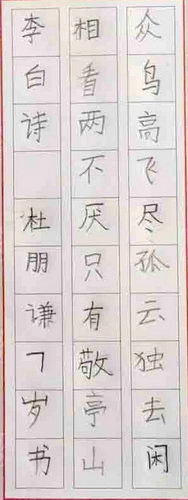 众鸟高飞尽孤云独去闲
相看两不厌只有敬亭山
李白诗 杜朋谦7岁书